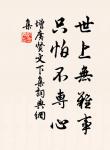 世上無難事
只怕不專心
增廣賢文下集詞典網
集